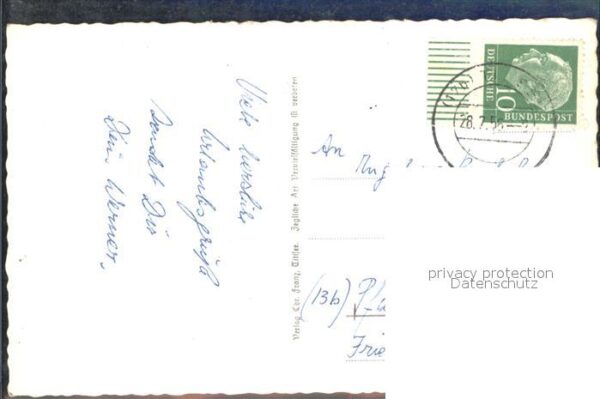 Viele herzliche
Urlaubsgrüße
sendet Dir
Dein Werner.
Verlag Chr. Franz, Jegliche Art Vervielfältigung ist verboten
DEUTSCHE
10
BUNDESPOST
28.7.56
An
(13b)
Frie
privacy protection
Datenschutz